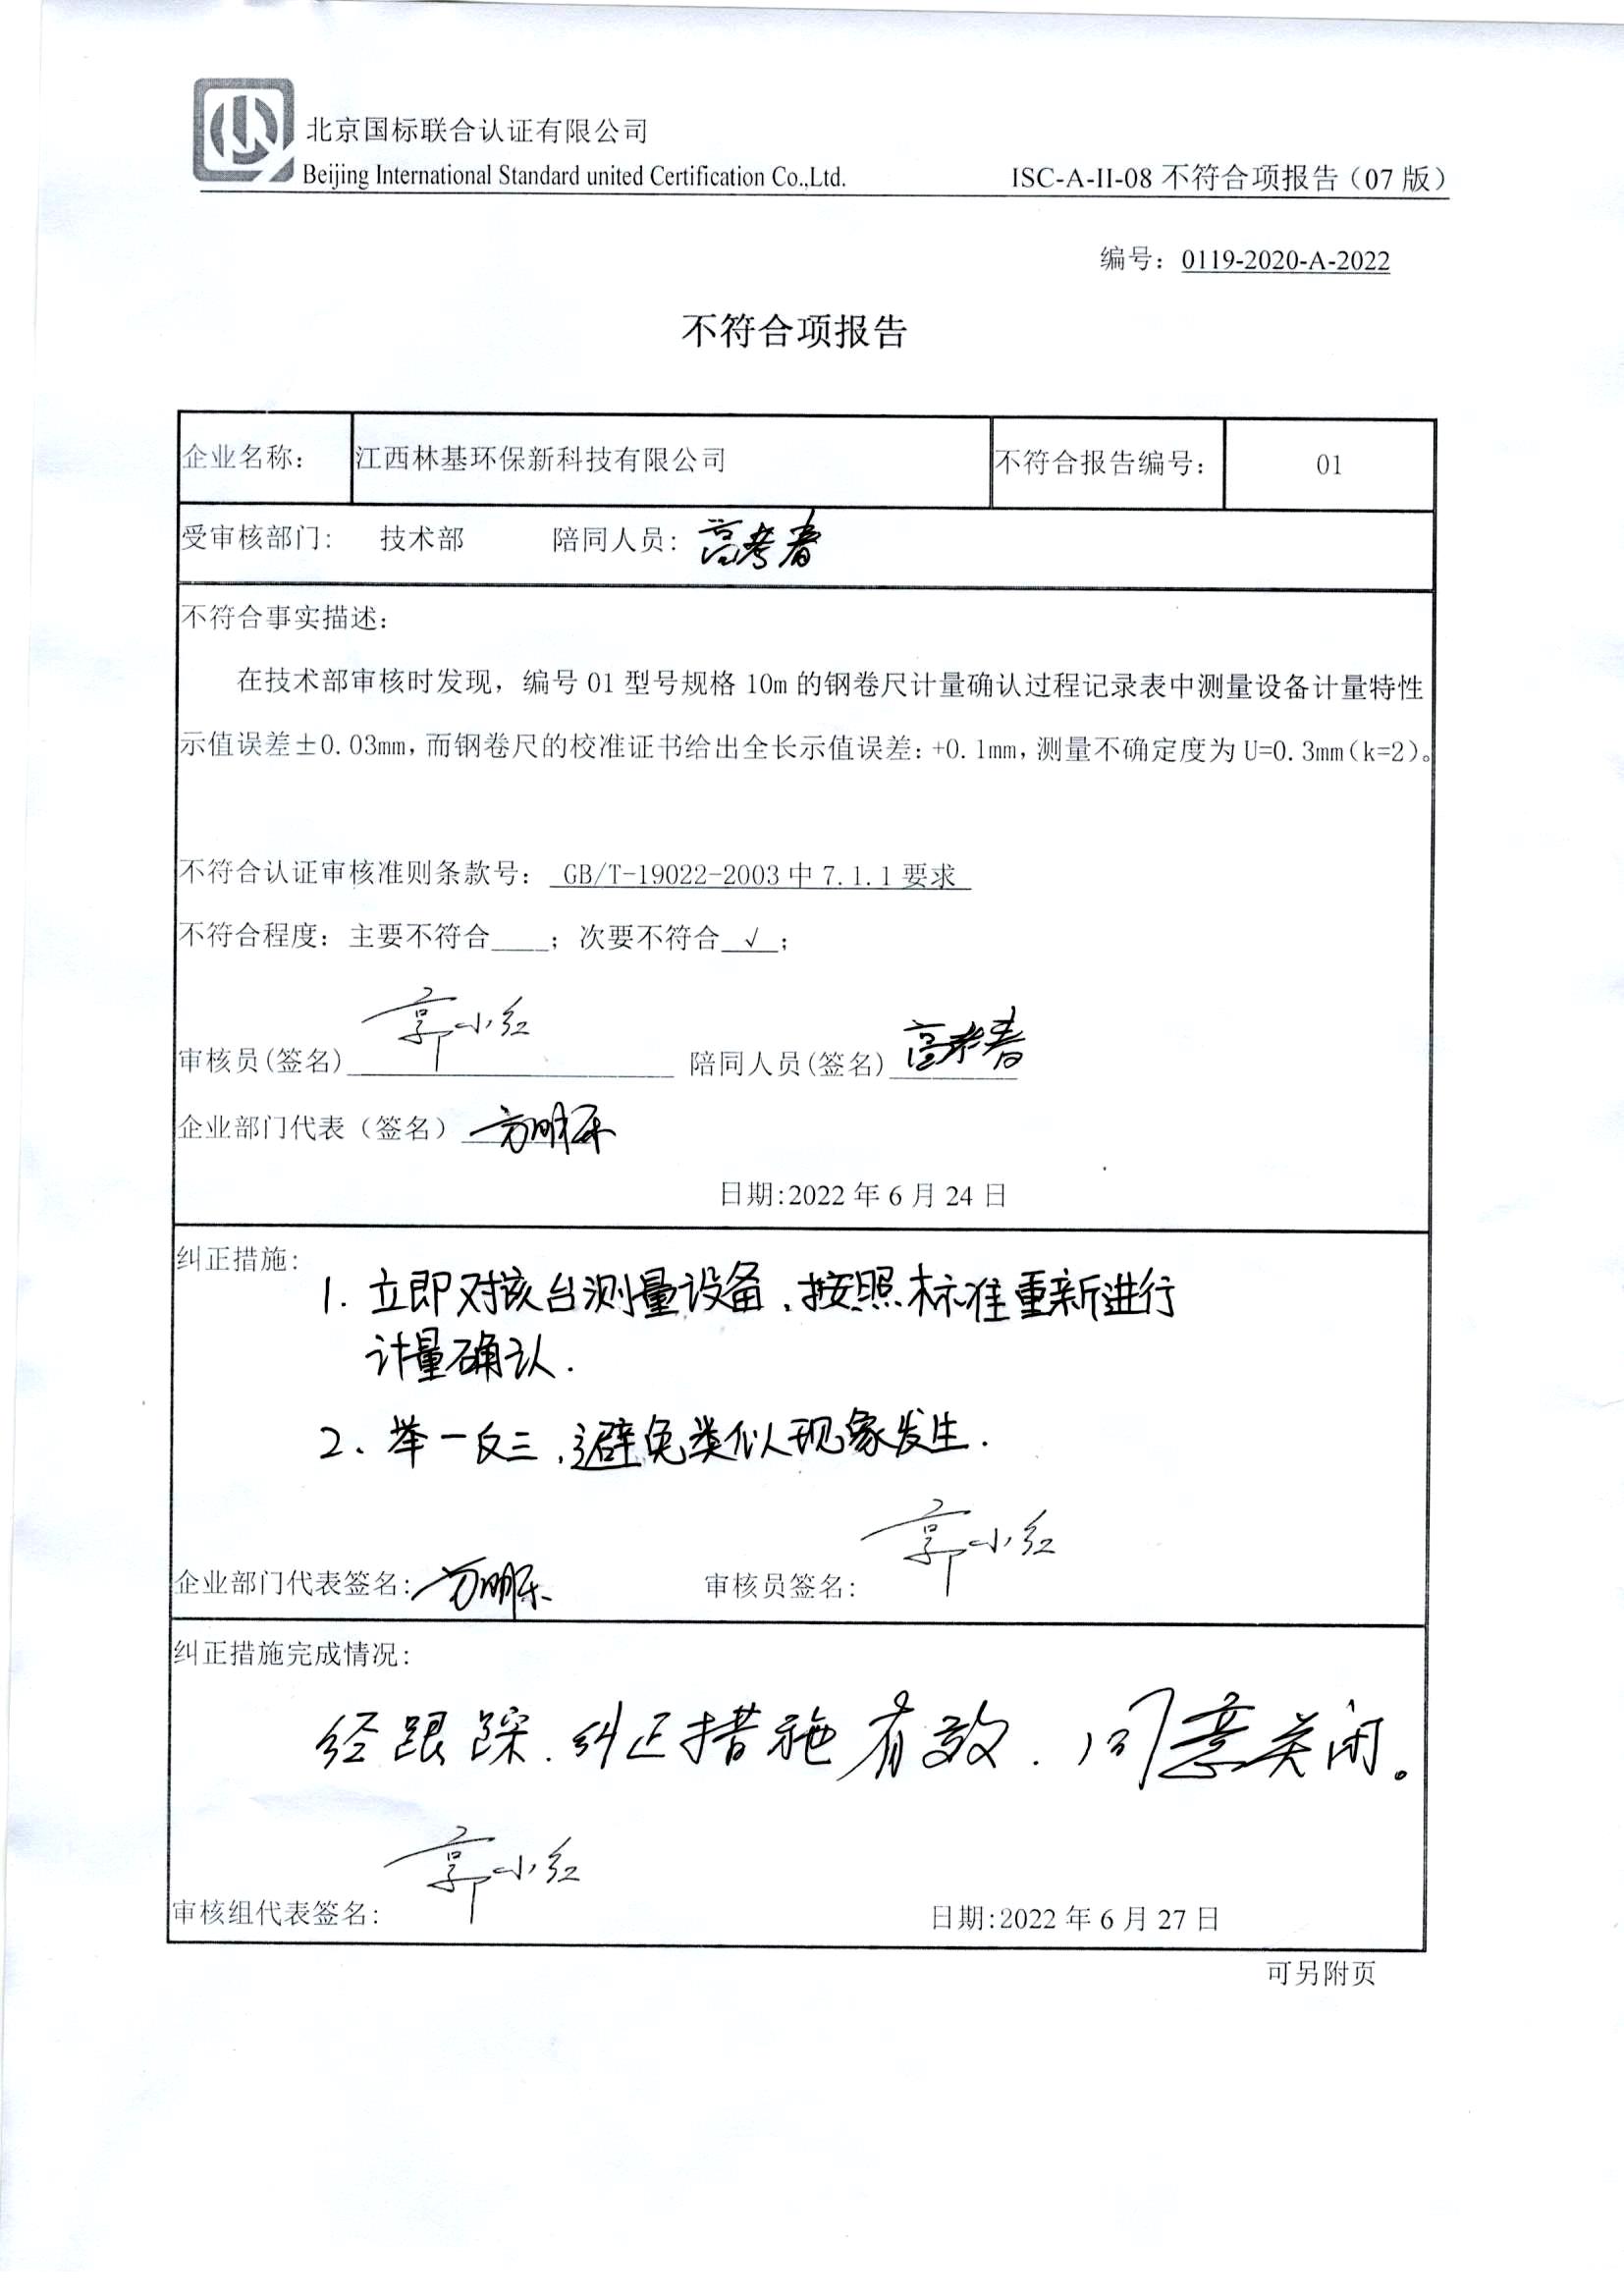 北京国标联合认证有限公司
Beijing International Standard united Certification Co.,Ltd.
ISC-A-II-08 不符合项报告（07 版）
编号：0119-2020-A-2022
不符合项报告
企业名称： 江西林基环保新科技有限公司 不符合报告编号： 01
受审核部门： 技术部 陪同人员：
不符合事实描述：
在技术部审核时发现，编号 01 型号规格 10m 的钢卷尺计量确认过程记录表中测量设备计量特性
示值误差±0.03mm，而钢卷尺的校准证书给出全长示值误差：+0.1mm，测量不确定度为 U=0.3mm（k=2）。
不符合认证审核准则条款号： GB/T-19022-2003 中 7.1.1 要求
不符合程度：主要不符合____；次要不符合 √ ；
审核员(签名) 郭小红 陪同人员(签名)
企业部门代表（签名）
日期:2022 年 6 月 24 日
纠正措施：
1. 立即对该台测量设备，按照标准重新进行
计量确认.
2、举一反三，避免类似现象发生.
企业部门代表签名： 审核员签名： 郭小红
纠正措施完成情况：
经跟踪.纠正措施有效.同意关闭。
审核组代表签名： 郭小红 日期:2022 年 6 月 27 日
可另附页